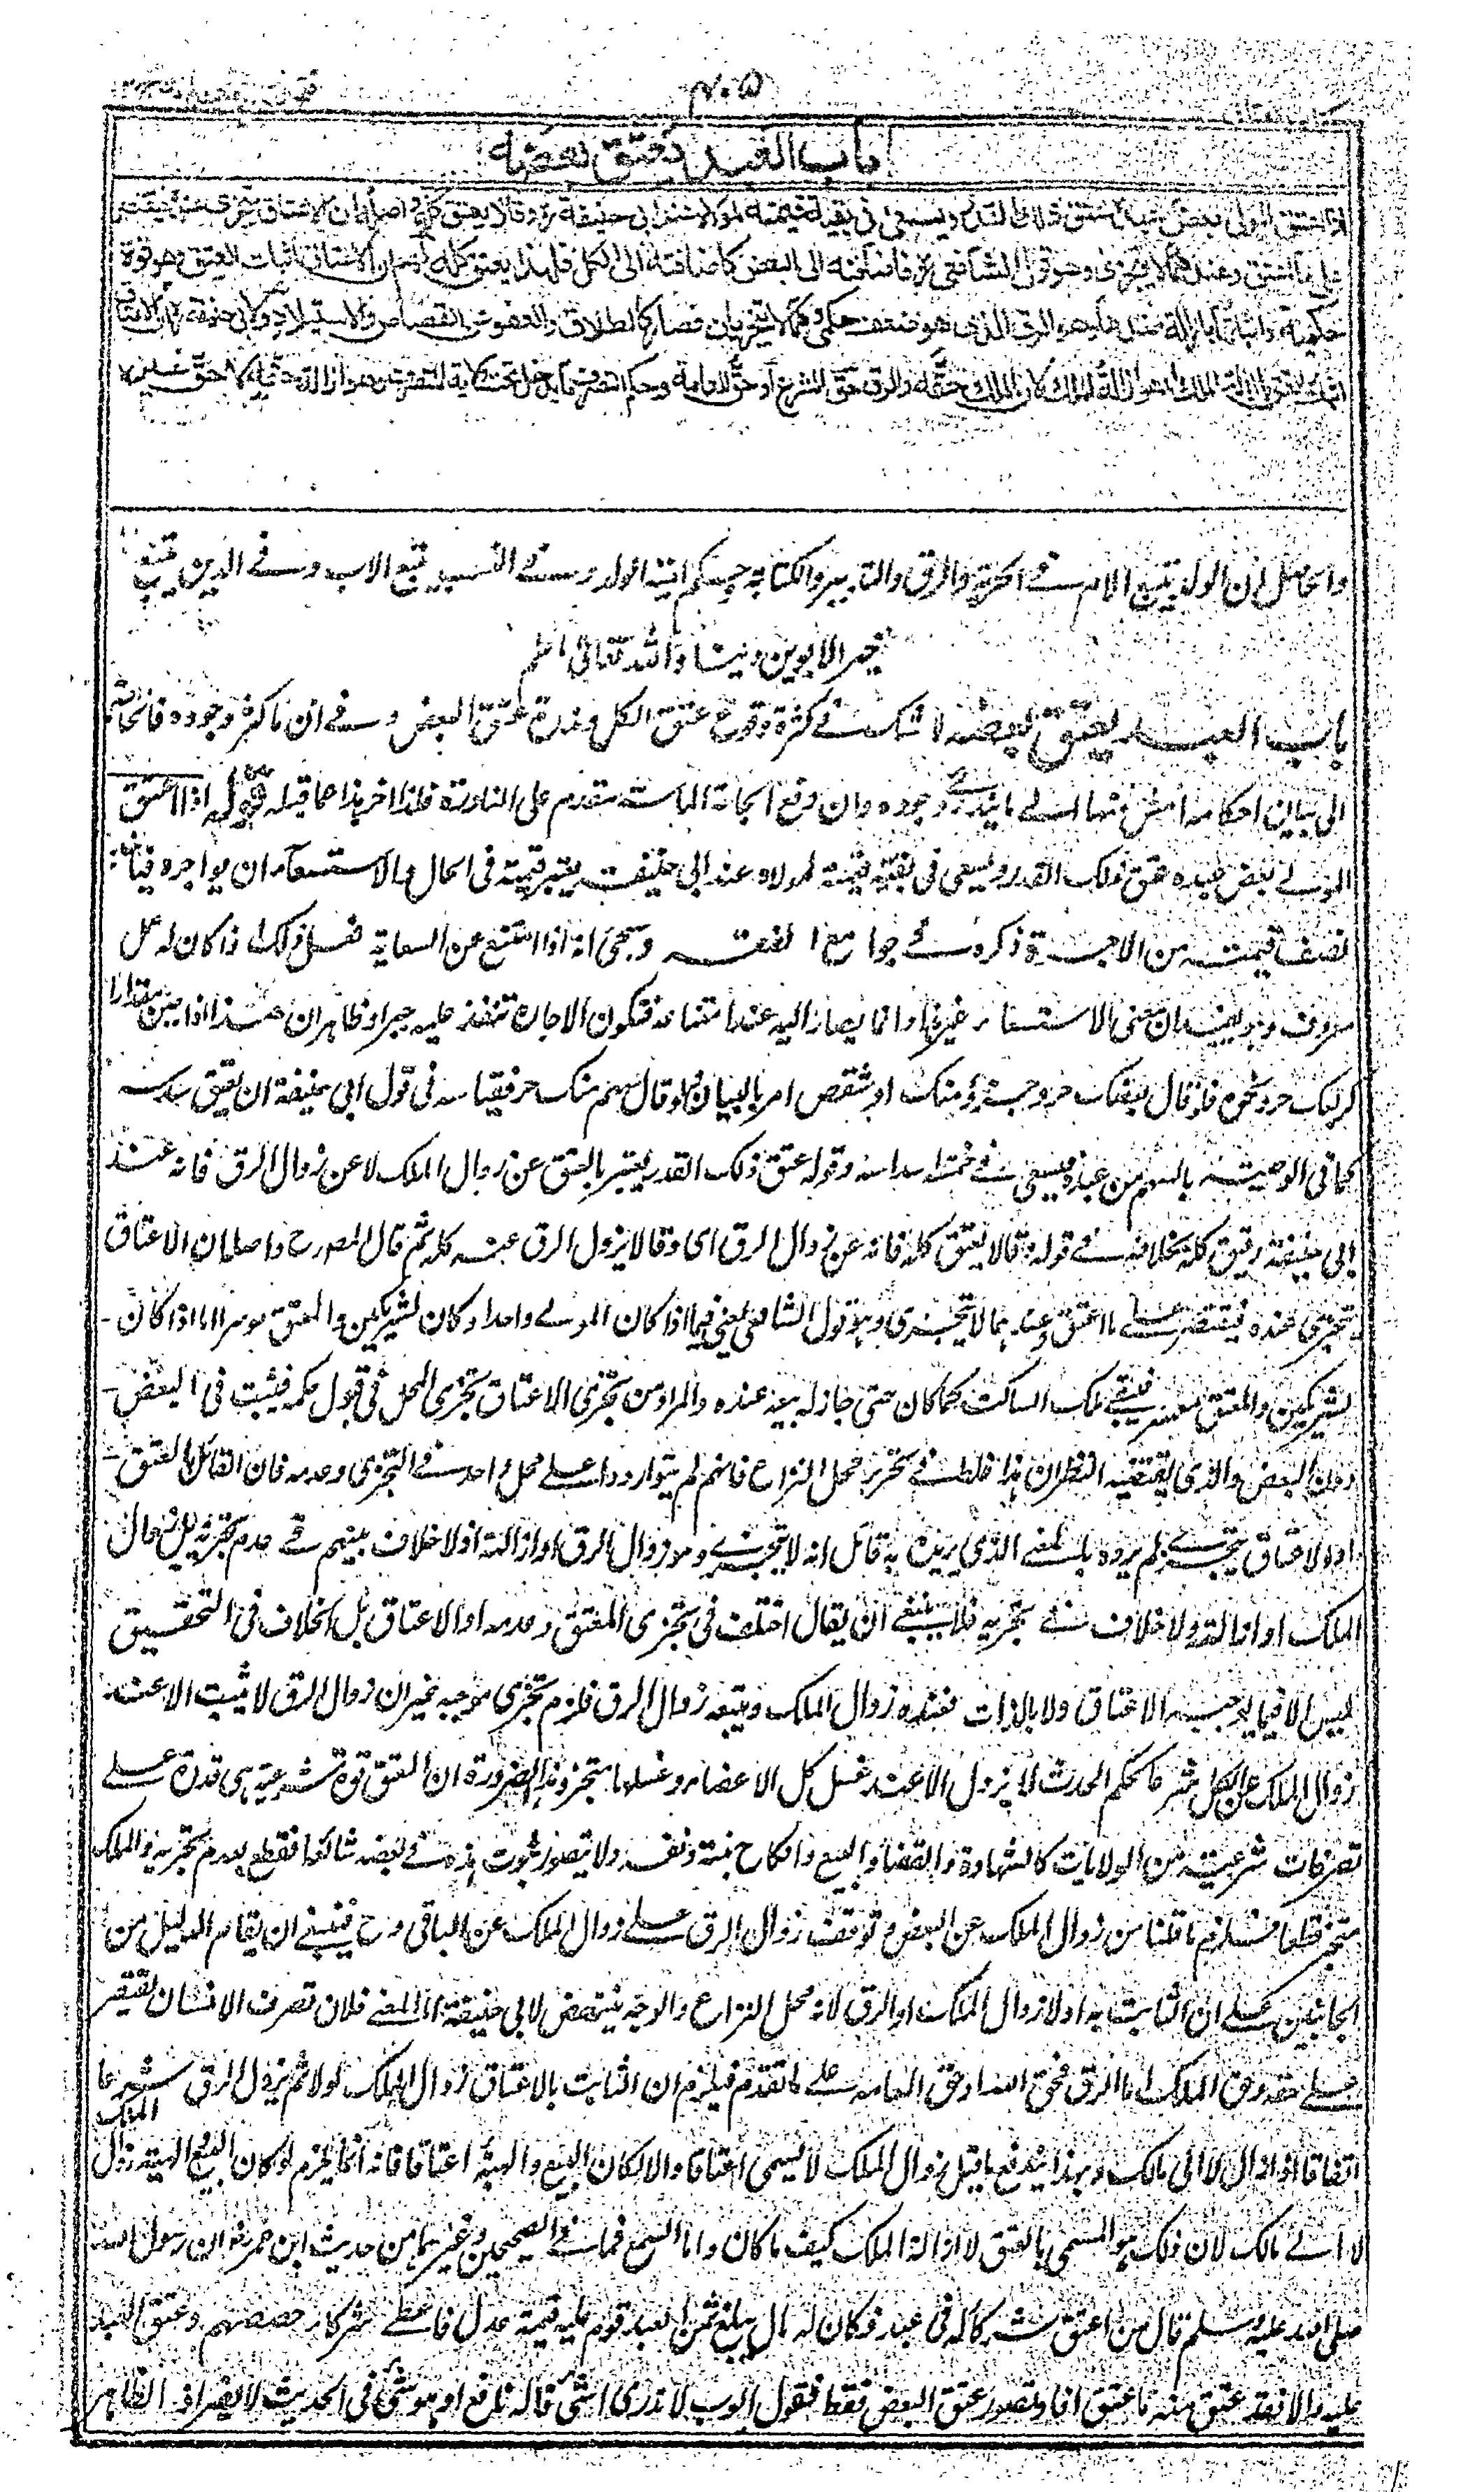 ۴۰۵
باب العبد يعتق بعضه
اذا اعتق المولى بعض عبده عتق ذلك القدر ويسعى فى بقية قيمته لمولاه عند ابى حنيفة رح وقالا يعتق كله واصله ان الاعتاق يتجزى عنده فيقتصر
على ما اعتق وعندهما لا يتجزى وهو قول الشافعى رح فاضافته الى البعض كاضافته الى الكل فلهذا يعتق كله لهم ان الاعتاق اثبات العتق وهو قوة
حكمية واثباتها بازالة ضدها وهو الرق الذى هو ضعف حكمى وهما لا يتجزيان فصار كالطلاق والعفو عن القصاص والاستيلاد ولابى حنيفة رح ان الاعتاق
اثبات العتق بازالة الملك او هو ازالة الملك لان الملك حقه والرق حق الشرع او حق العامة وحكم التصرف ما يدخل تحت ولاية المتصرف وهو ازالة حقه لا حق غيره
والحاصل ان الولد يتبع الام فى الحرية والرق والتدبير والكتابة وفى النسب يتبع الاب وفى الدين يتبع
خير الابوين دينا والله تعالى اعلم
باب العبد يعتق بعضه لا شك فى كثرة وقوع عتق الكل وندرة عتق البعض وفى ان ما كثر وجوده فالحاجة
الى بيان احكامه امس منها الى ما يندر وجوده وان دفع الحاجة الماسة مقدم على النادرة فلذا اخر هذا عما قبله قوله اذا اعتق
المولى بعض عبده عتق ذلك القدر ويسعى فى بقية قيمته لمولاه عند ابى حنيفة يعتبر قيمته فى الحال والاستسعاء ان يواجره فياخذ
نصف قيمته من الاجرة ذكره فى جوامع الفقه وسيجئ انه اذا امتنع عن السعاية فعل ذلك اذا كان له عمل
معروف وهو يفيد ان معنى الاستسعاء غيرها وانما يصار اليه عند امتناعه فتكون الاجارة تنفذ عليه جبرا وظاهر ان هذا اذا عين مقدارا
كربعك حر ونحوه فلو قال بعضك حر او جزء منك او شقص امر بالبيان ولو قال سهم منك حر فقياسه فى قول ابى حنيفة ان يعتق سدسه
كما فى الوصية بالسهم من عبده فيسعى فى خمسة اسداسه وقوله عتق ذلك القدر يعتبر بالعتق عن زوال الملك لا عن زوال الرق فانه عند
ابى حنيفة رقيق كله بخلافه فى قوله وقالا يعتق كله فانه عن زوال الرق اى وقالا يزول الرق عنه كله ثم قال المص رح واصله ان الاعتاق
يتجزى عنده فيقتصر على ما اعتق وعندهما لا يتجزى وهو قول الشافعى يعنى فيما اذا كان المولى واحدا او كان لشريكين والمعتق موسرا اما اذا كان
لشريكين والمعتق معسر فيبقى ملك الساكت كما كان حتى جاز له بيعه عنده والمراد من تجزى الاعتاق تجزى المحل فى قبول حكمه فيثبت فى البعض
دون البعض والذى يقتضيه النظر ان هذا غلط فى تحرير محل النزاع فانهم لم يتواردوا على محل واحد فى التجزى وعدمه فان القائل بالعتق
او الاعتاق يتجزى لم يرده بالمعنى الذى يريده به قائل انه لا يتجزى وهو زوال الرق او ازالته اذ لا خلاف بينهم فى عدم تجزيه بل زوال
الملك او ازالته ولا خلاف فى تجزيه فلا ينبغى ان يقال اختلف فى تجزى العتق وعدمه او الاعتاق بل الخلاف فى التحقيق
ليس الا فيما يوجبه الاعتاق اولا بالذات فعنده زوال الملك ويتبعه زوال الرق فلزم تجزى موجبه غير ان زوال الرق لا يثبت الا عند
زوال الملك عن الكل شرعا كحكم الحدث لا يزول الا عند غسل كل الاعضاء وغسلها متجز وهذا لضرورة ان العتق قوة شرعية هى قدرة على
تصرفات شرعية من الولايات كالشهادة والقضاء والبيع وانكاح بنته ونفسه ولا يتصور ثبوت هذه فى بعضه شائعا فقطع بعدم تجزيه والملك
متجز قطعا فلزم ما قلنا من زوال الملك عن البعض وتوقف زوال الرق على زوال الملك عن الباقى وح فينبغى ان يقام الدليل من
الجانبين على ان الثابت به اولا زوال الملك او الرق لانه محل النزاع والوجه منتهض لابى حنيفة اما المعنى فلان تصرف الانسان يقتصر
على حقه وحق الملك اما الرق فحق الله او حق العامة على ما تقدم فيلزم ان الثابت بالاعتاق زوال الملك اولا ثم يزول الرق شرعا
اتفاقا اذا زال لا الى مالك وبهذا يندفع ما قيل زوال الملك لا يسمى اعتاقا والا لكان البيع والهبة اعتاقا فانه انما يلزم لو كان البيع والهبة زوال الملك
لا الى مالك لان ذلك هو المسمى بالعتق لا ازالة الملك كيف ما كان واما السمع فما فى الصحيحين وغيرهما من حديث ابن عمر رض ان رسول الله
صلى الله عليه وسلم قال من اعتق شركا له فى عبد فكان له مال يبلغ ثمن العبد قوم عليه قيمة عدل فاعطى شركاءه حصصهم وعتق العبد
عليه والا فقد عتق منه ما عتق افاد تصور عتق البعض فقط فقول ايوب لا ندرى اشئ قاله نافع او هو شئ فى الحديث لا يضر اذ الظاهر